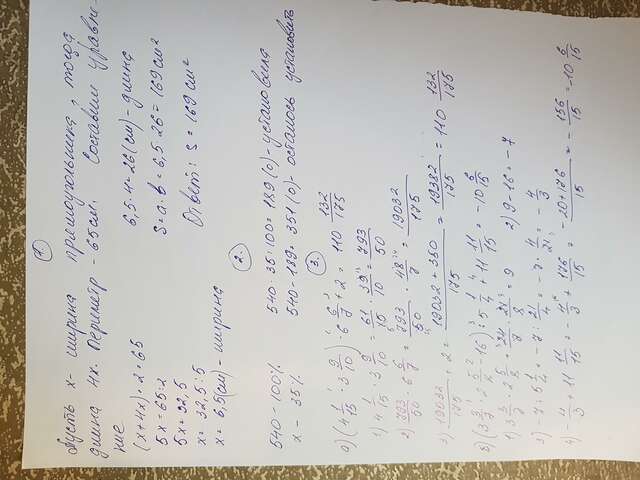 1)
Пусть x - ширина прямоугольника, тогда
длина 4x. Периметр - 65см. Составим уравне-
ние
(x+4x)·2=65
5x=65:2
5x=32,5
x=32,5:5
x=6,5(см)-ширина
6,5·4=26(см)-длина
S=a·b=6,5·26=169 см²
Ответ: S=169 см²
2.
540-100%
x-35%
540·35:100=189(0)-установлена
540-189=351(0)-осталось установить
3.
а)(4 1/15 · 3 9/10) · 6 6/7 + 2 = 110 132/175
1) 4 1/15 · 3 9/10 = 61/15 · 39/10 = 793/50
2) 793/50 · 6 6/7 = 793/50 · 48/7 = 19032/175
3) 19032/175 + 2 = 19032+350/175 = 19382/175 = 110 132/175
1) 3 3/7 · 2 5/8 = 24/7 · 21/8 = 9
2) 9-16=-7
3) -7:5 1/4 = -7:21/4 = -7·4/21 = -4/3
4) -4/3 + 11 11/15 = -4/3 + 176/15 = -20+176/15 = -156/15 = -10 6/15